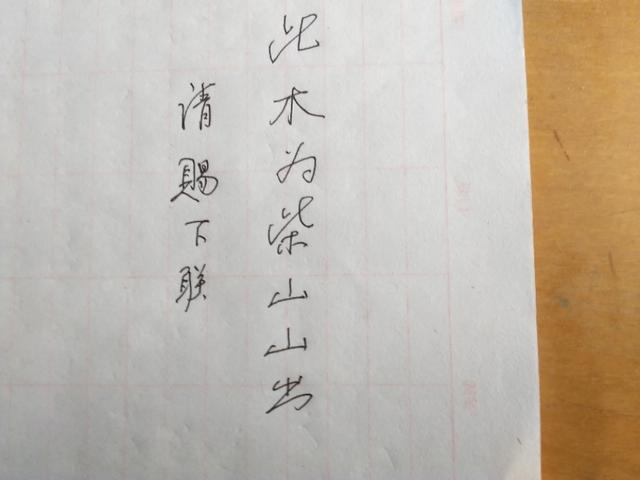 此木为柴山山出
请赐下联